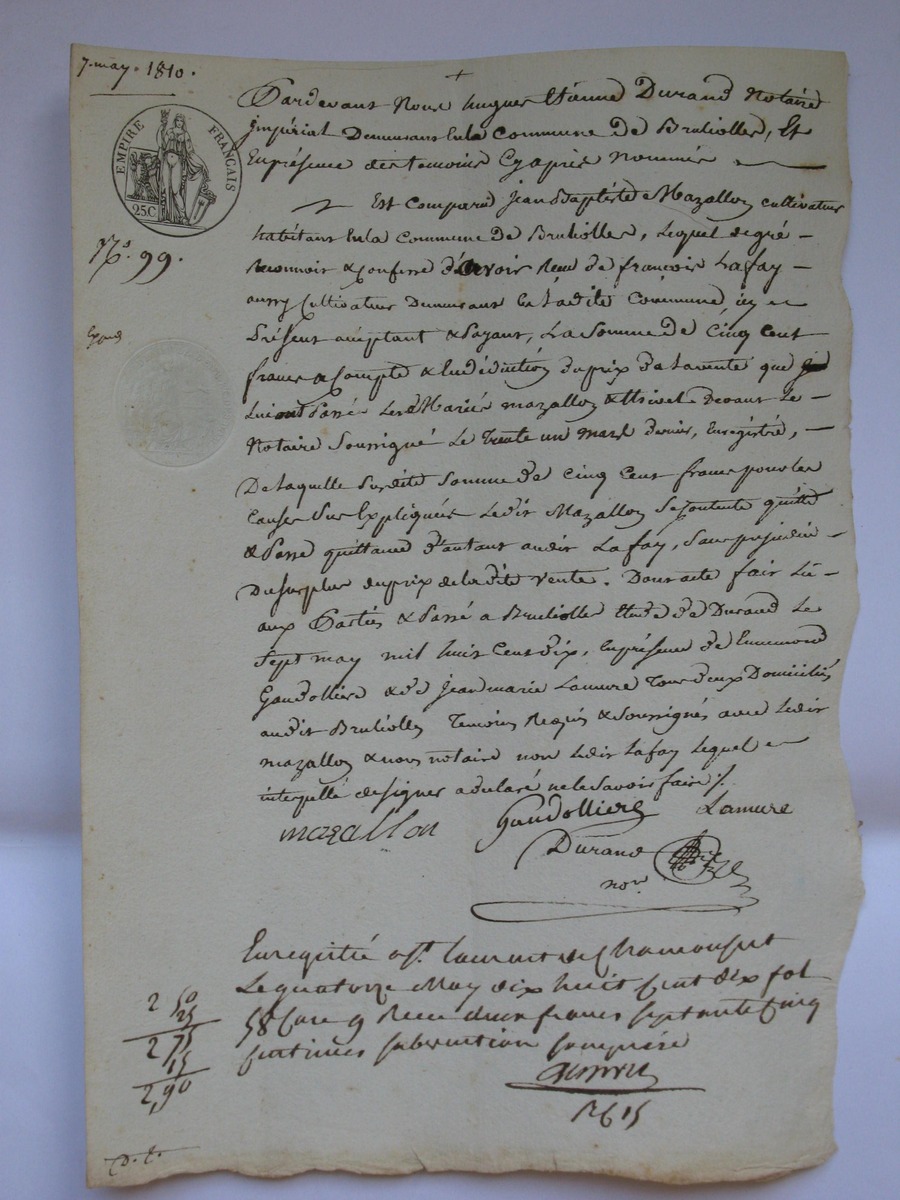 7. may. 1810.
EMPIRE FRANÇAIS
25C
N.º 99.
Expéd
Pardevant Nous hugues Etienne Durand Notaire
Impérial Demeurant En la Commune De Brulliolles, Et
En présence des temoins Cyaprès Nommés
Est Comparu Jean Baptiste Mazallon cultivateur
habitant En la Commune De Brulliolles, Lequel de gré
Reconnoit & Confesse d'avoir Reçu de françois Lafay
aussy Cultivateur Demeurant En Ladite Commune icy
Présent acceptant & Payant, La Somme De Cinq Cent
francs a Compte & En déduction du prix De La vente que
Lui ont Passé Les d. Mariés Mazallon & Devant Le
Notaire Soussigné Le Trente un Mars dernier, Enregistré,
De Laquelle Susdite Somme De Cinq Cent francs pour les
Causes Sus Expliquées Ledit Mazallon Se Contente quitte
& Passe quittance d'autant audit Lafay, Sans préjudice
Du Surplus du prix de la dite vente. Dont acte fait Lu
aux Parties & Passé a Brulliolles Etude De Durand Le
Sept may mil huit Cent dix, En présence De Ennemond
Gaudollière & de Jean marie Lamure Tous deux Domiciliés
audit Brulliolles Temoins Requis & Soussignés avec Ledit
Mazallon & nous notaire non Ledit Lafay Lequel
interpellé de signer a déclaré ne le Savoir faire ./.
mazallon Gaudolliere Lamure
Durand
no.re
Enregistré a St. Laurent de Chamousset
Le quatorze May dix huit cent dix fol
58 Case 9 Reçu deux francs septante cinq
centimes subvention comprise
2 50
25
2 75
15
2,90
2615
D. L.